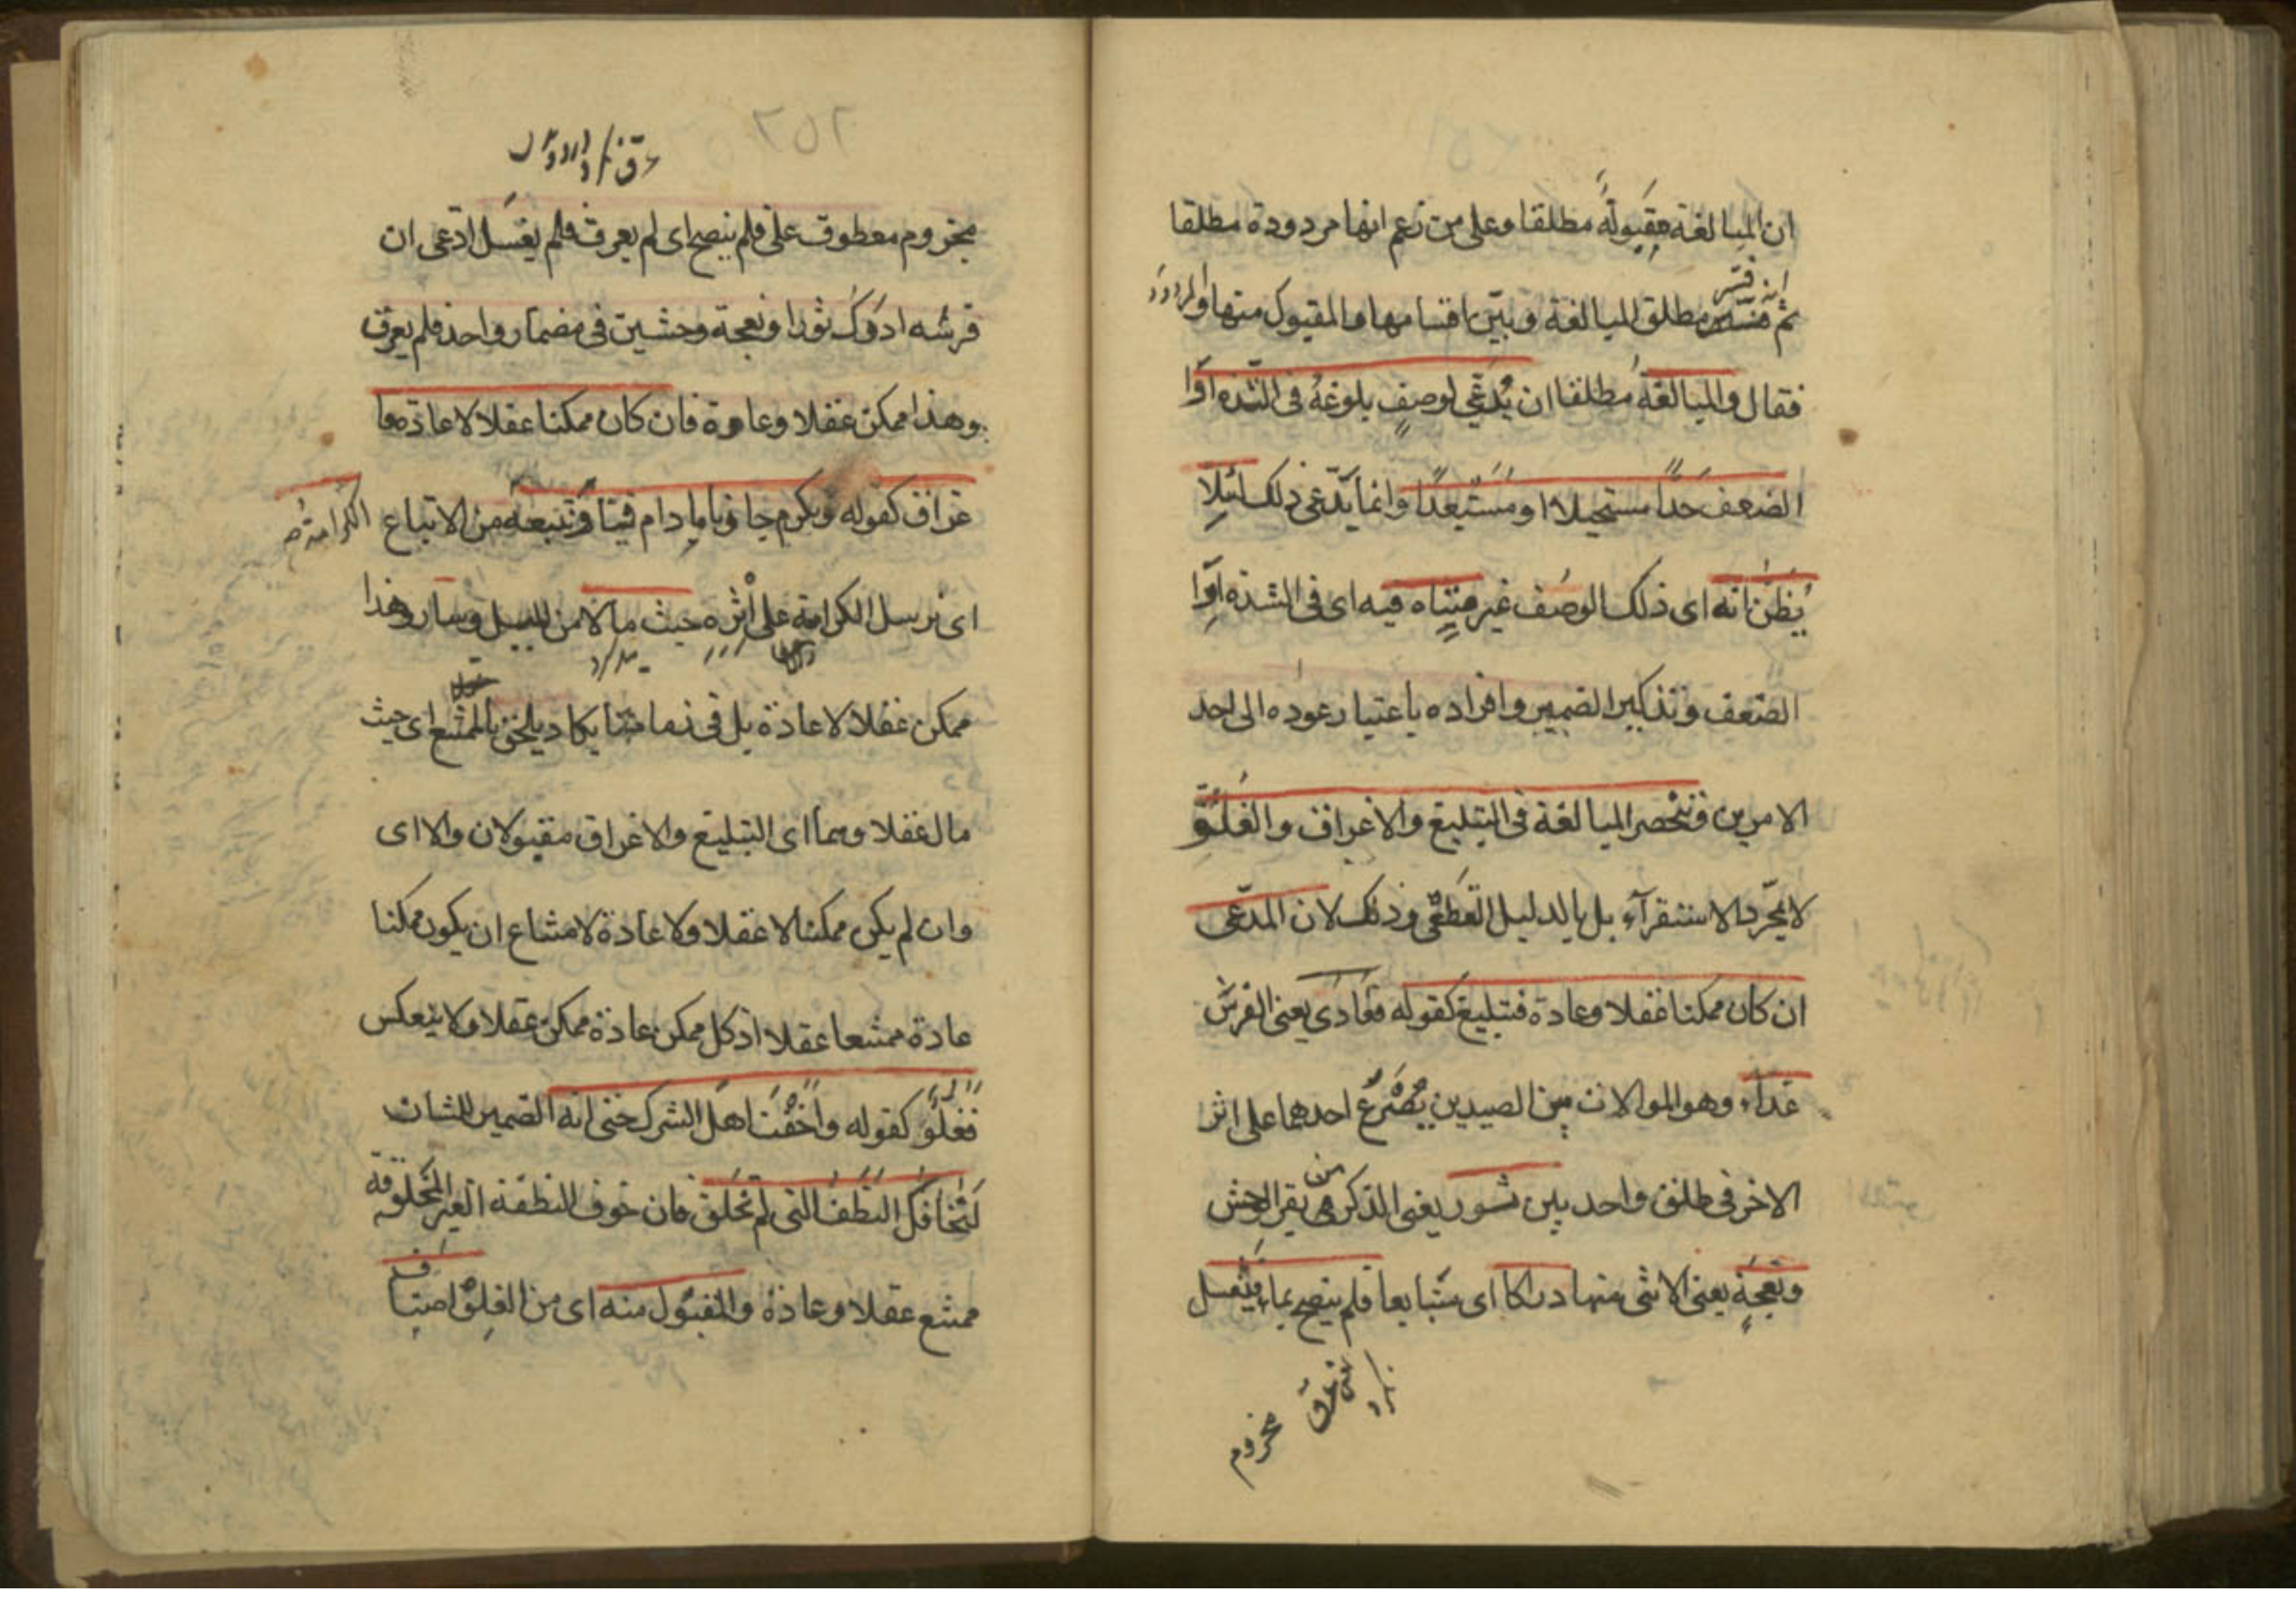 ان المبالغة مقبولة مطلقا وعلى من زعم انها مردودة مطلقا
ثم فسر مطلق المبالغة وبين اقسامها والمقبول منها والمردود
فقال والمبالغة مطلقا ان يُدّعى لوصفٍ بلوغهُ فى الشدة او
الضعف حدّاً مستحيلا او مستبعدًا وانما يدّعى ذلك لئلا
يُظنّ انه اى ذلك الوصف غير متناه فيه اى فى الشدة او
الضعف وتذكير الضمير وافراده باعتبار عوده الى احد
الامرين وتنحصر المبالغة فى التبليغ والاغراق والغلو
لا بمجرد الاستقرآء بل بالدليل القطعى وذلك لان المدّعى
ان كان ممكنا عقلا وعادة فتبليغ كقوله فعادى يعنى الفرس
عداء وهو الموالات بين الصيدين يُصرع احدهما على اثر
الاخر فى طلق واحد بين ثور يعنى الذكر من بقر الوحش
ونعجةٍ يعنى الانثى منها دراكا اى متتابعا فلم ينضح بماء فيغسل
مجزوم
٢٥٢
مجزوم معطوف على فلم ينضح اى لم يعرق فلم يغسل ادّعى ان
فرسه ادرك ثورا ونعجة وحشيين فى مضمار واحد فلم يعرق
وهذا ممكن عقلا وعادة فان كان ممكنا عقلا لا عادة فا
غراق كقوله ونكرم جارنا مادام فينا ونتبعه من الاتباع الكرامة
اى نرسل الكرامة على اثره حيث مالا من السبيل وسار وهذا
ممكن عقلا لا عادة بل فى زماننا يكاد يلحق بالممتنع اى حيث
مال عقلا وهما اى التبليغ والاغراق مقبولان والا اى
وان لم يكن ممكنا لا عقلا ولا عادة لامتناع ان يكون ممكنا
عادة ممتنعا عقلا اذ كل ممكن عادة ممكن عقلا ولا ينعكس
فغلوّ كقوله واخفت اهل الشرك حتى انه الضمير للشان
لتخافك النطف التى لم تخلق فان خوف النطفة الغير المخلوقة
ممتنع عقلا وعادة والمقبول منه اى من الغلو اصناف